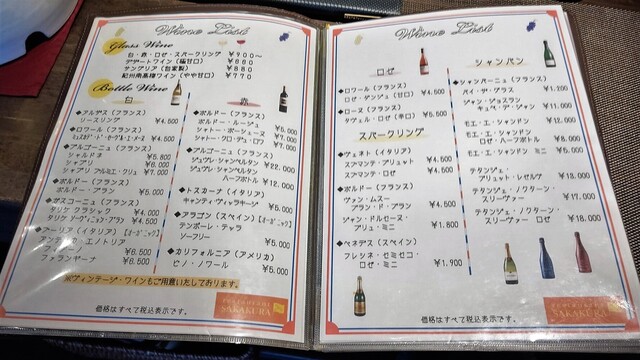 Wine List
Glass Wine
白・赤・ロゼ・スパークリング ¥900〜
デザートワイン（極甘口） ¥660
サングリア（自家製） ¥880
紀州南高梅ワイン（やや甘口） ¥770
Bottle Wine
白
◆アルザス（フランス）
リースリング ¥4.500
◆ロワール（フランス）
¥4.500
◆ブルゴーニュ（フランス）
シャルドネ ¥5.800
シャブリ ¥6.000
シャブリ プルミエ・クリュ ¥7.000
◆ボルドー（フランス）
ボルドー・ ¥5.000
◆ガスコーニュ（フランス）
タリケ クラシック ¥4.000
¥4.500
◆プーリア（イタリア）【オーガニック】
アンティカ・エノトリア
¥6.500
ファランギーナ ¥6.500
※ヴィンテージ・ワインもご用意いたしております。
価格はすべて税込表示です。
赤
◆ボルドー（フランス）
ボルドー・ルージュ ¥5.000
シャトー・ボーシェーヌ ¥7.000
シャトー・クロ・デュ・ロワ ¥7.000
◆ブルゴーニュ（フランス）
ジュヴレ・シャンベルタン ¥22.000
ジュヴレ・シャンベルタン
ハーフボトル ¥12.000
◆トスカーナ（イタリア）
キャンティ・ヴィラージ ¥5.000
◆アラゴン（スペイン）【オーガニック】
テンポーレ・テラ
ソーフリー ¥5.000
◆カリフォルニア（アメリカ）
ピノ・ノワール ¥5.000
SAKAKURA
Wine List
ロゼ
◆ロワール（フランス）
ロゼ・ダンジュ（甘口） ¥4.500
◆ローヌ（フランス）
タヴェル・ロゼ（辛口） ¥5.500
スパークリング
◆ヴェネト（イタリア）
スプマンテ・ブリュット ¥4.500
スプマンテ・ロゼ ¥4.600
◆ボルドー（フランス）
ヴァン・ムスー
ブラン・ド・ブラン ¥4.500
ジャン・ドルセーヌ・
ブリュ・ミニ ¥1.800
◆ペネデス（スペイン）
フレシネ・セミセコ・
ロゼ・ミニ ¥1.900
シャンパン
◆シャンパーニュ（フランス）
バイ・ザ・グラス ¥1.200
ジャン・ジョスラン
キュヴェ・デ・ジャン ¥11.000
モエ・エ・シャンドン ¥12.000
モエ・エ・シャンドン
ロゼ・ハーフボトル ¥8.000
モエ・エ・シャンドン ミニ ¥5.000
テタンジェ・
ブリュット・レゼルヴ ¥13.000
テタンジェ・ノクターン・
スリーヴァー ¥17.000
テタンジェ・ノクターン・
スリーヴァー ロゼ ¥18.000
価格はすべて税込表示です。
SAKAKURA